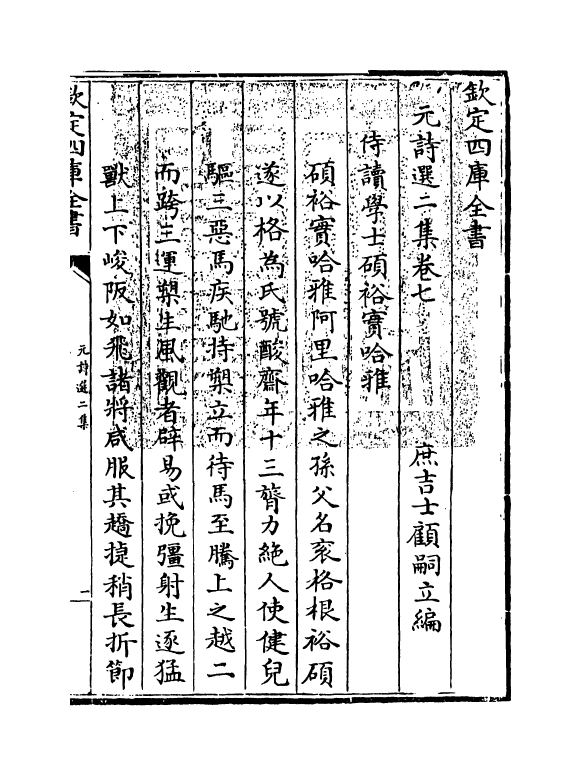 欽定四庫全書
元詩選二集卷七
庶吉士顧嗣立編
侍讀學士碩裕實哈雅
碩裕實哈雅阿里哈雅之孫父名袞格根裕碩
遂以格為氏號酸齋年十三膂力絶人使健兒
驅三惡馬疾馳持槊立而待馬至騰上之越二
而跨三運槊生風觀者辟易或挽彊射生逐猛
獸上下峻阪如飛諸將咸服其趫捷稍長折節
欽定四庫全書
元詩選二集